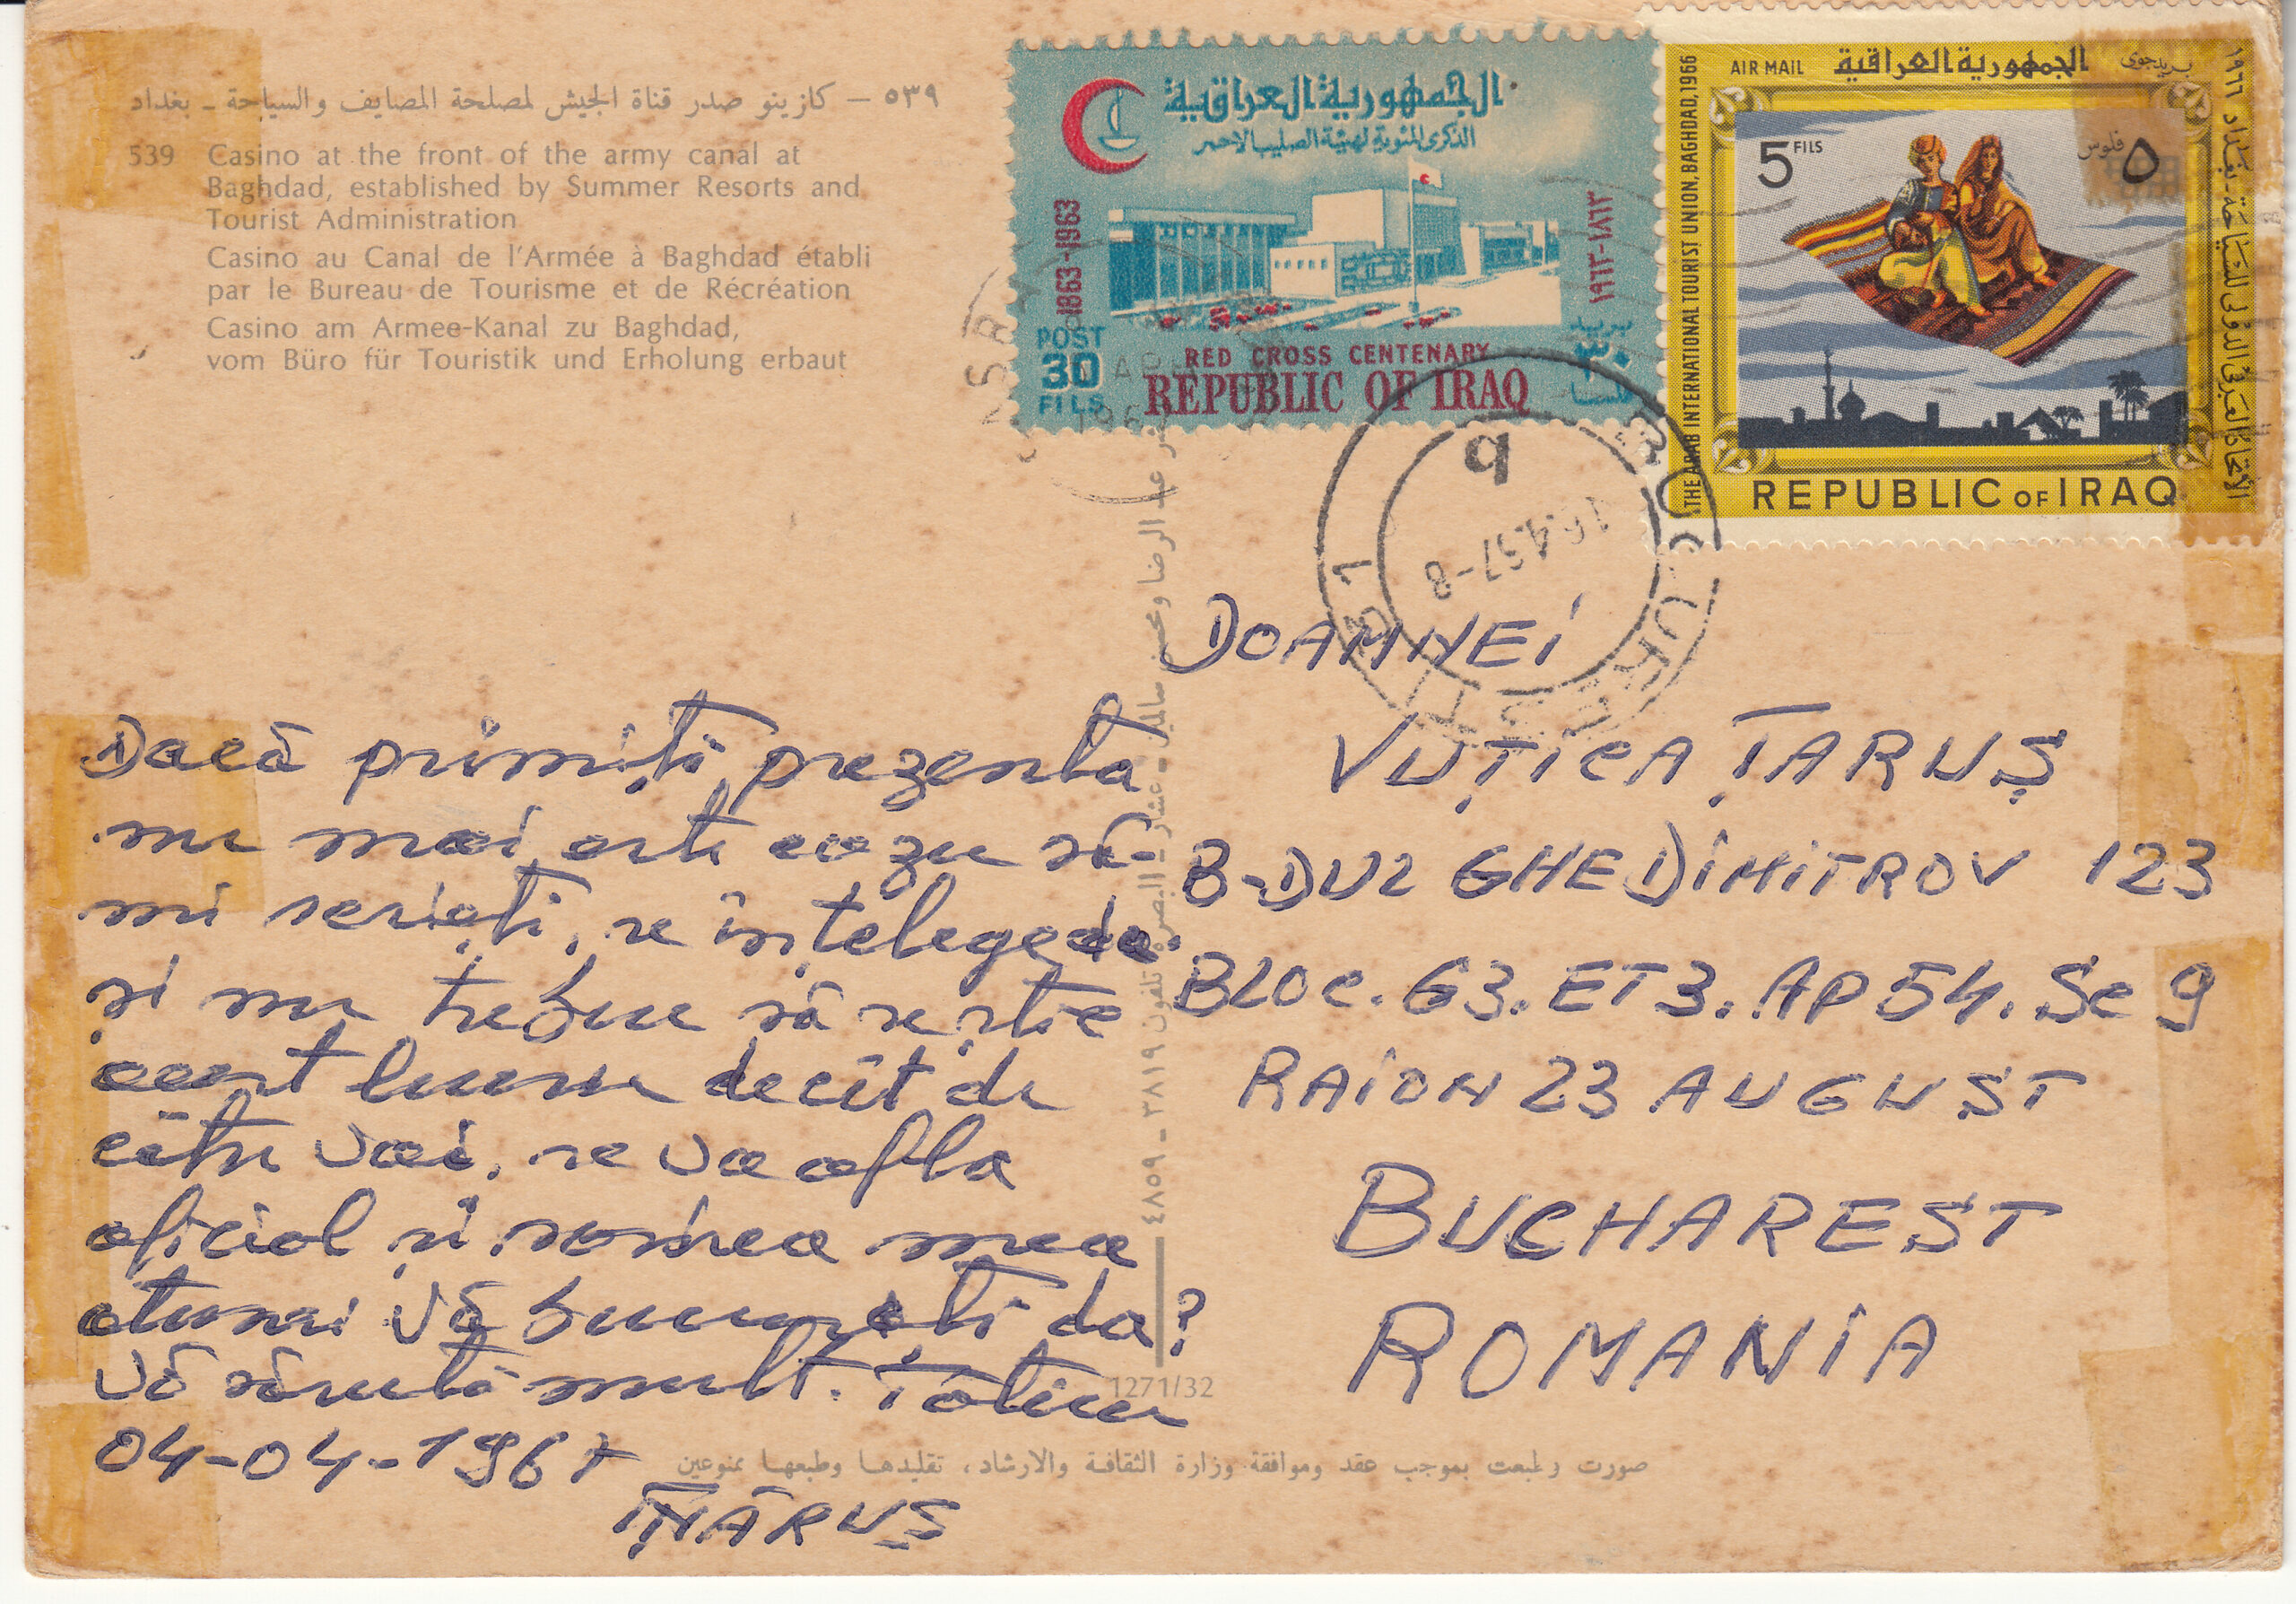 ٥٣٩ — كازينو صدر قناة الجيش لمصلحة المصايف والسياحة ـ بغداد
539 Casino at the front of the army canal at
Baghdad, established by Summer Resorts and
Tourist Administration
Casino au Canal de l'Armée à Baghdad établi
par le Bureau de Tourisme et de Récréation
Casino am Armee-Kanal zu Baghdad,
vom Büro für Touristik und Erholung erbaut
الجمهورية العراقية
الذكرى المئوية لهيئة الصليب الاحمر
1863-1963
١٨٦٣-١٩٦٣
POST بريد
30 ٣٠
FILS فلسا
RED CROSS CENTENARY
REPUBLIC OF IRAQ
AIR MAIL الجمهورية العراقية بريد جوي
THE ARAB INTERNATIONAL TOURIST UNION, BAGHDAD, 1966
5 FILS ٥ فلوس
REPUBLIC OF IRAQ
BUCURESTI
16.4.67-8
Dacă primiți prezenta
nu mai este cazu să-
mi scrieți, se înțelege
și nu trebue să se știe
acest lucru decît de
către voi, se va afla
oficial și sosirea mea
atunci Vă bucurați da?
Vă sărută mult. Tăticu
04-04-1967
ȚĂRUȘ
DOAMNEI
VUȚICA ȚARUȘ
B-DUL GHE DIMITROV 123
BLOC. G3. ET 3. AP 54. Sc 9
RAION 23 AUGUST
BUCHAREST
ROMANIA
تلفون ٣٨١٩ - ٤٨٥٩
1271/32
صورت وطبعت بموجب عقد وموافقة وزارة الثقافة والارشاد، تقليدها وطبعها ممنوعين